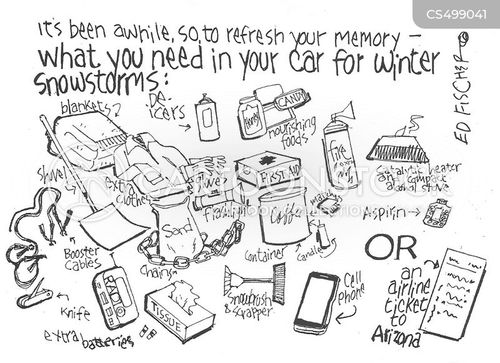 CS499041
it's been awhile, so, to refresh your memory —
what you need in your car for winter
snowstorms:
ED FISCHER
blankets
De-
icers
Honey
CANDY
nourishing
foods
shovel
extra
clothes
Fire
FIRST AID
catalytic heater
or compact
alcohol stove
Aspirin
Sand
Coffee
container
candle
Booster
Cables
chains
Knife
extra batteries
TISSUE
Snowbrush
& scrapper
Cell
phone
OR
an
airline
ticket
to
Arizona